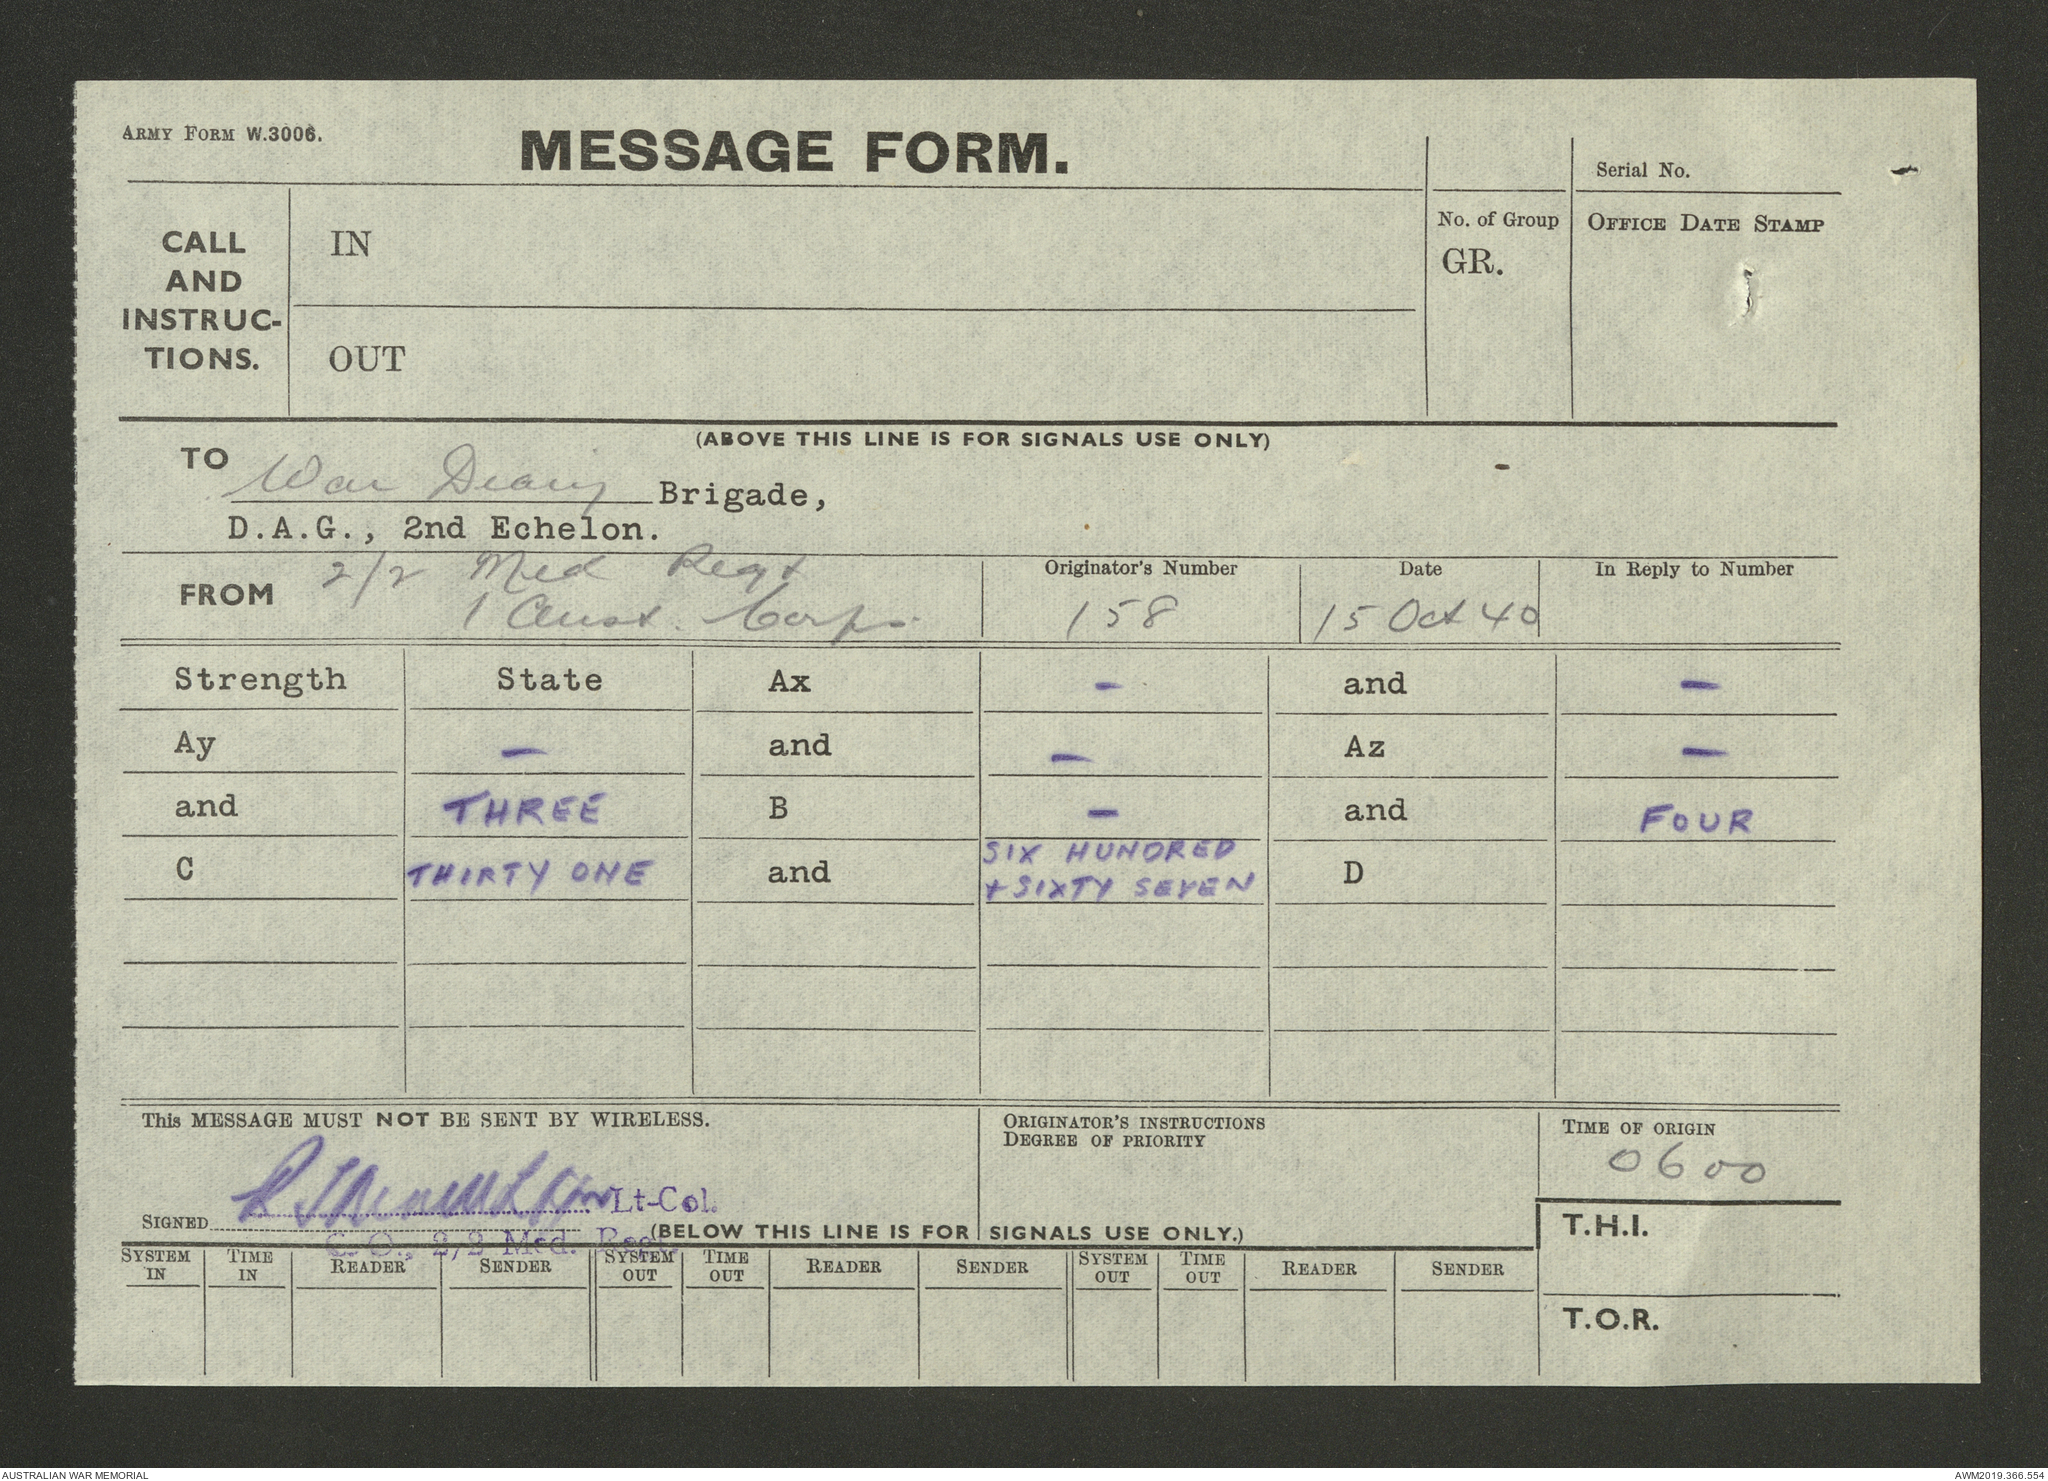 ARMY FORM W.3006.
MESSAGE FORM.
Serial No.
CALL
AND
INSTRUC-
TIONS.
IN
OUT
No. of Group
GR.
OFFICE DATE STAMP
(ABOVE THIS LINE IS FOR SIGNALS USE ONLY)
TO War Diary Brigade,
D.A.G., 2nd Echelon.
FROM 2/2 Med Regt
1 Aust. Corps.
Originator's Number
158
Date
15 Oct 40
In Reply to Number
Strength State Ax - and -
Ay - and - Az -
and THREE B - and FOUR
C THIRTY ONE and SIX HUNDRED
+ SIXTY SEVEN D
This MESSAGE MUST NOT BE SENT BY WIRELESS.
ORIGINATOR'S INSTRUCTIONS
DEGREE OF PRIORITY
TIME OF ORIGIN
0600
SIGNED Lt-Col.
C.O., 2/2 Med. Regt.
(BELOW THIS LINE IS FOR SIGNALS USE ONLY.)
T.H.I.
SYSTEM IN TIME IN READER SENDER SYSTEM OUT TIME OUT READER SENDER SYSTEM OUT TIME OUT READER SENDER
T.O.R.
AUSTRALIAN WAR MEMORIAL
AWM2019.366.554